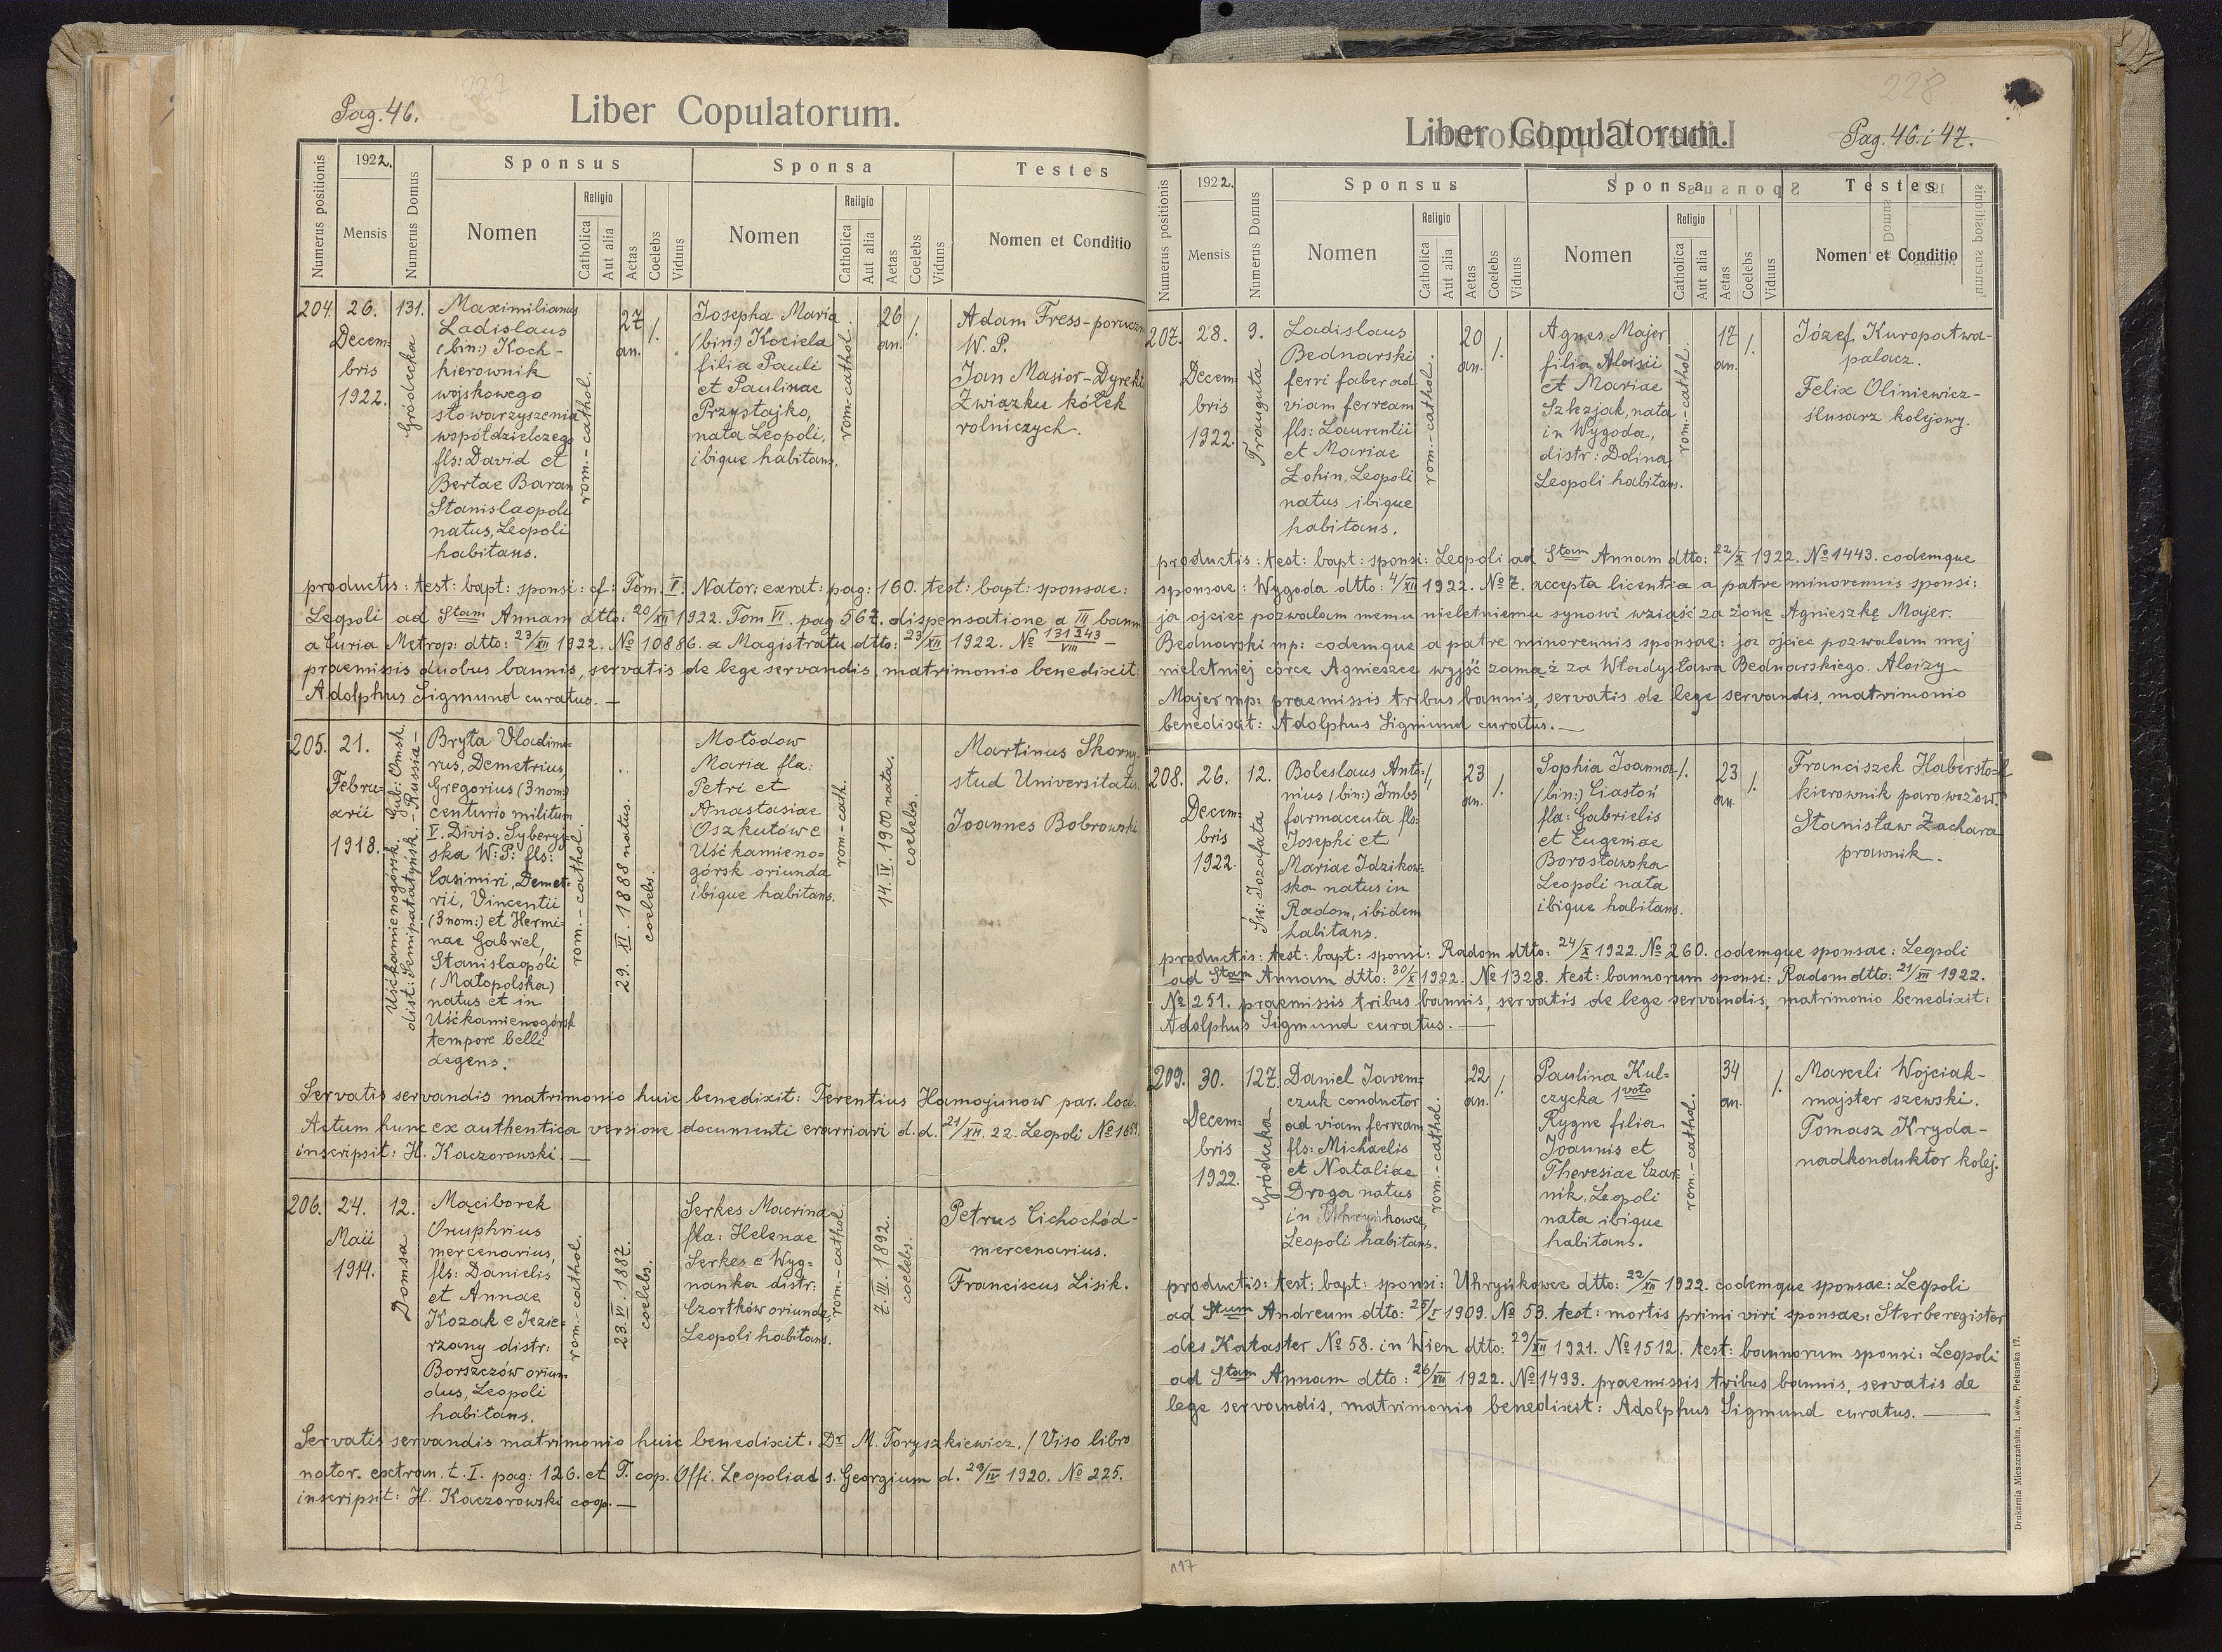 Pag. 46.
227
Liber Copulatorum.
Numerus positionis
1922.
Mensis
Numerus Domus
Sponsus
Nomen
Religio
Catholica
Aut alia
Aetas
Coelebs
Viduus
Sponsa
Nomen
Religio
Catholica
Aut alia
Aetas
Coelebs
Viduus
Testes
Nomen et Conditio
204.
26.
Decem-
bris
1922.
131.
Gródecka
Maximilianus
Ladislaus
(bin:) Koch-
kierownik
wojskowego
stowarzyszenia
współdzielczego
fls: David et
Bertae Baran
Stanislaopoli
natus, Leopoli
habitans.
rom.-cathol.
27
an.
/.
Josepha Maria
(bin:) Kociela
filia Pauli
et Paulinae
Przystajko,
nata Leopoli,
ibique habitans.
rom-cathol.
26
an.
/.
Adam Fress-porucz
W. P.
Jan Masior-Dyrek
Związku kółek
rolniczych.
productis: test: bapt: sponsi: cf: Tom. I. Nator: exrat: pag: 160. test: bapt: sponsae:
Leopoli ad Stam Annam dtto: 20/XII 1922. Tom VI. pag 567. dispensatione a III bann
a Curia Metrop: dtto: 23/XII 1922. № 10886. a Magistratu dtto: 23/XII 1922. № 131243/VIII –
praemissis duobus bannis, servatis de lege servandis, matrimonio benedixit:
Adolphus Sigmund curatus. —
205.
21.
Febru-
arii
1918.
Uśćkamienogórsk. Gub: Omsk,
dist: Semipatatyńsk.-Russia-
Bryła Vladimi-
rus, Demetrius,
Gregorius (3 nom:)
centurio militum
V. Divis. Syberyj-
ska W: P: fls:
Casimiri, Demet-
rii, Vincentii
(3 nom:) et Hermi-
nae Gabriel,
Stanislaopoli
(Małopolska)
natus et in
Uśćkamienogórsk
tempore belli
degens.
rom.-cathol.
29. XI. 1888 natus.
coelebs.
Mołodow
Maria fla:
Petri et
Anastasiae
Oszkutówe
Uśćkamieno-
górsk oriunda
ibique habitans.
rom.-cath.
14. IV. 1900 nata.
coelebs.
Martinus Skorny-
stud Universitatis.
Joannes Bobrowski
Servatis servandis matrimonio huic benedixit: Terentius Hamajunow par. loci.
Actum hunc ex authentica versione documenti exarriavi d. d. 21/XII. 22. Leopoli №
inscripsit: H. Kaczorowski. —
206.
24.
Maii
1914.
12.
Domsa
Maciborek
Onuphrius
mercenarius,
fls: Danielis
et Annae
Kozak e Jezie-
rzany distr:
Borszczów oriun-
dus, Leopoli
habitans.
rom.-cathol.
23. VI. 1887.
coelebs.
Serkes Macrina
fla: Helenae
Serkes e Wyg-
nanka distr:
Czortków oriunda,
Leopoli habitans.
rom.-cathol.
7. III. 1892.
coelebs.
Petrus Cichochód-
mercenarius.
Franciscus Lisik.
Servatis servandis matrimonio huic benedixit: Dr M. Toryszkiewicz. / Viso libro
nator. extran. t. I. pag: 126. et T. cop. Offi. Leopoli ad s. Georgium d. 29/IV 1920. № 225.
inscripsit: H. Kaczorowski coop. —
228
Liber Copulatorum.
Pag. 46. i 47.
Numerus positionis
1922.
Mensis
Numerus Domus
Sponsus
Nomen
Religio
Catholica
Aut alia
Aetas
Coelebs
Viduus
Sponsa
Nomen
Religio
Catholica
Aut alia
Aetas
Coelebs
Viduus
Testes
Nomen et Conditio
207.
28.
Decem-
bris
1922.
9.
Traugutta
Ladislaus
Bednarski
ferri faber ad
viam ferream
fls: Laurentii
et Mariae
Łohin, Leopoli
natus ibique
habitans.
rom.-cathol.
20
an.
/.
Agnes Majer
filia Aloisii
et Mariae
Szlezjak, nata
in Wygoda,
distr: Dolina,
Leopoli habitans.
rom.-cathol.
17
an.
/.
Józef Kuropatwa-
palacz.
Felix Oliniewicz-
ślusarz kolejowy.
productis: test: bapt: sponsi: Leopoli ad Stam Annam dtto: 22/X 1922. № 1443. eodemque
sponsae: Wygoda dtto: 4/XII 1922. № 7. accepta licentia a patre minorennis sponsi:
ja ojciec pozwalam memu nieletniemu synowi wziąść za żonę Agnieszkę Majer.
Bednarski mp: eodemque a patre minorennis sponsae: ja ojciec pozwalam mej
nieletniej córce Agnieszce wyjść zamąż za Władysława Bednarskiego. Aloizy
Majer mp: praemissis tribus bannis, servatis de lege servandis, matrimonio
benedixit: Adolphus Sigmund curatus. —
208.
26.
Decem-
bris
1922.
12.
Św: Jozafata
Boleslaus Anto-
nius (bin:) Imbs
farmaceuta fls:
Josephi et
Mariae Idzikow-
ska natus in
Radom, ibidem
habitans.
/.
23
an.
/.
Sophia Joanna
(bin:) Ciastoń
fla: Gabrielis
et Eugeniae
Borosławska
Leopoli nata
ibique habitans.
/.
23
an.
/.
Franciszek Habersto
kierownik parowozów.
Stanisław Zachara
prawnik.
productis: test: bapt: sponsi: Radom dtto: 24/X 1922. № 260. eodemque sponsae: Leopoli
ad Stam Annam dtto: 30/X 1922. № 1328. test: bannorum sponsi: Radom dtto: 21/XII 1922.
№ 251. praemissis tribus bannis, servatis de lege servandis, matrimonio benedixit:
Adolphus Sigmund curatus. —
209.
30.
Decem-
bris
1922.
127.
Gródecka
Daniel Jarem-
czuk conductor
ad viam ferream
fls: Michaelis
et Nataliae
Droga natus
in Uhryńkowce,
Leopoli habitans.
rom.-cathol.
22
an.
/.
Paulina Kul-
czycka 1voto
Rygne filia
Joannis et
Theresiae Czar-
nik, Leopoli
nata ibique
habitans.
rom.-cathol.
34
an.
/.
Marceli Wojciak-
majster szewski.
Tomasz Kryda-
nadkonduktor kolej.
productis: test: bapt: sponsi: Uhryńkowce dtto: 22/XII 1922. eodemque sponsae: Leopoli
ad Stum Andreum dtto: 25/I 1909. № 53. test: mortis primi viri sponsae: Sterberegister
des Kataster № 58. in Wien dtto: 29/XII 1921. № 1512. test: bannorum sponsi: Leopoli
ad Stam Annam dtto: 26/XII 1922. № 1493. praemissis tribus bannis, servatis de
lege servandis, matrimonio benedixit: Adolphus Sigmund curatus. —
Drukarnia Mieszczańska, Lwów, Piekarska 17.
117